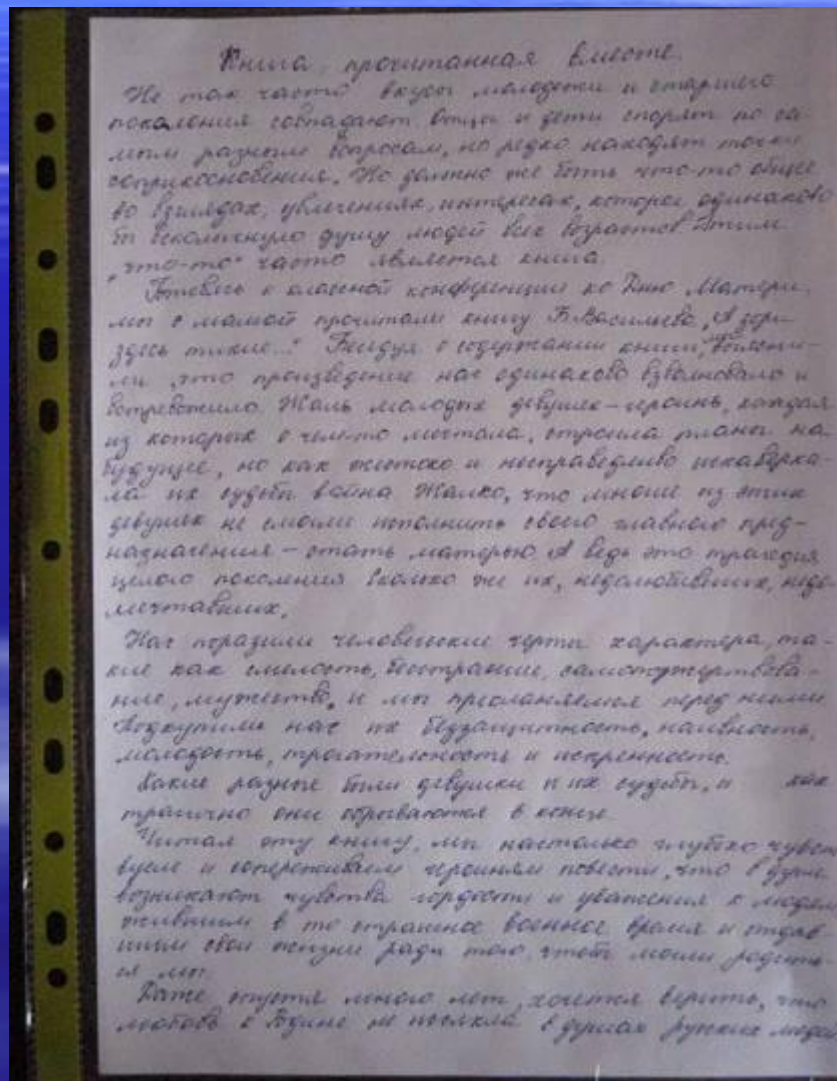 Книга, прочитанная вместе.
Не так часто вкусы молодежи и старшего
поколения совпадают. Отцы и дети спорят по са-
мым разным вопросам, но редко находят точки
соприкосновения. Но должно же быть что-то общее
во взглядах, увлечениях, интересах, которое одинаково
бы всколыхнуло душу людей всех возрастов. Этим
"что-то" часто является книга.
Готовясь к классной конференции ко Дню Матери,
мы с мамой прочитали книгу Б. Васильева "А зори
здесь тихие..." Беседуя о содержании книги, выясни-
ли, что произведение нас одинаково взволновало и
встревожило. Жаль молодых девушек-героинь, каждая
из которых о чем-то мечтала, строила планы на
будущее, но как жестоко и несправедливо исковерка-
ла их судьбы война. Жалко, что многие из этих
девушек не смогли исполнить своего главного пред-
назначения - стать матерью. А ведь это трагедия
целого поколения. Сколько же их, недолюбивших, недо
мечтавших.
Нас поразили человеческие черты характера, та-
кие как смелость, бесстрашие, самопожертвова-
ние, мужество, и мы преклоняемся перед ними.
Подкупили нас их беззащитность, наивность,
молодость, трогательность и искренность.
Какие разные были девушки и их судьбы, и как
трагично они обрываются в конце.
Читая эту книгу, мы настолько глубоко чувст
вуем и сопереживаем героиням повести, что в душе
возникают чувства гордости и уважения к людям
жившим в то страшное военное время и отдав-
шим свои жизни ради того, чтобы могли родить-
ся мы.
Даже спустя много лет, хочется верить, что
любовь к Родине не иссякла в душах русских людей